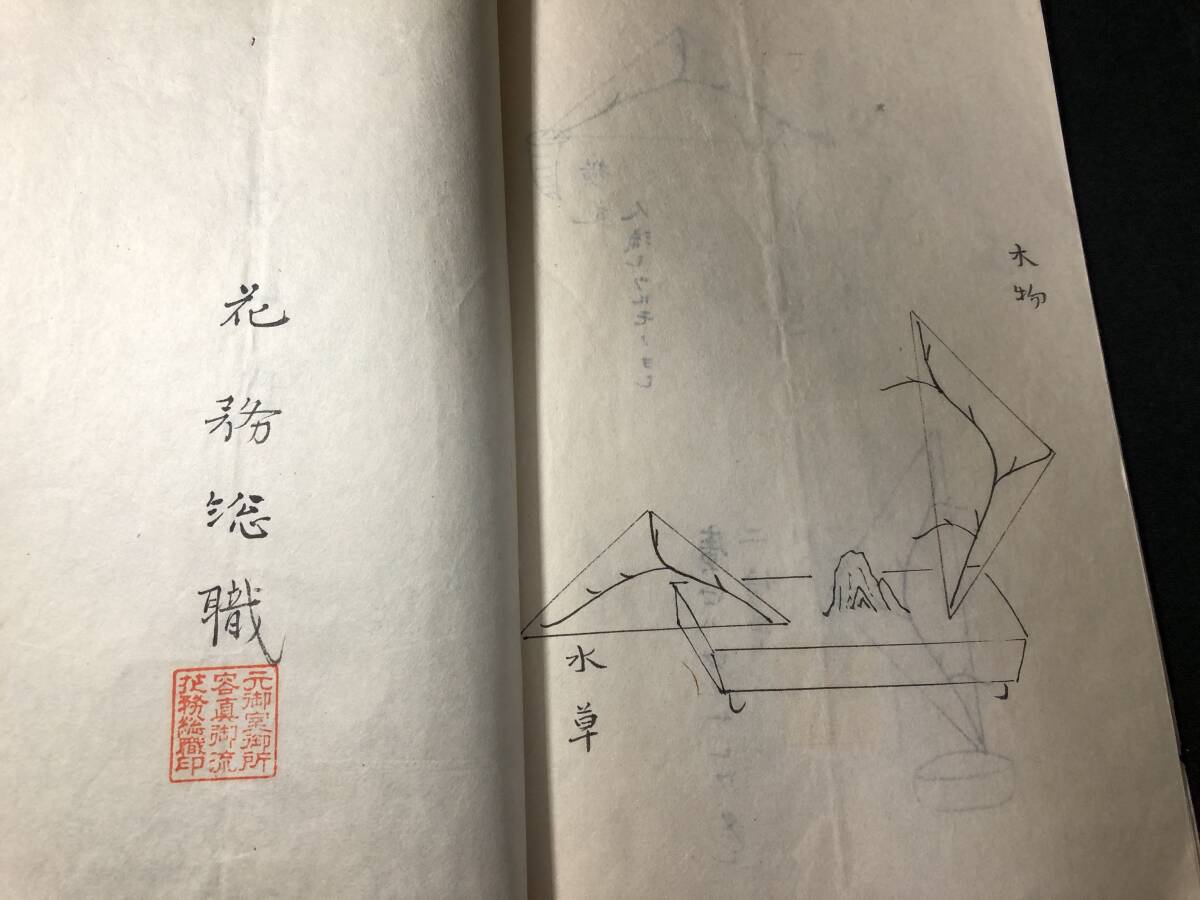 木物
水草
花務総職
元御室御所
容真御流
花務総職印